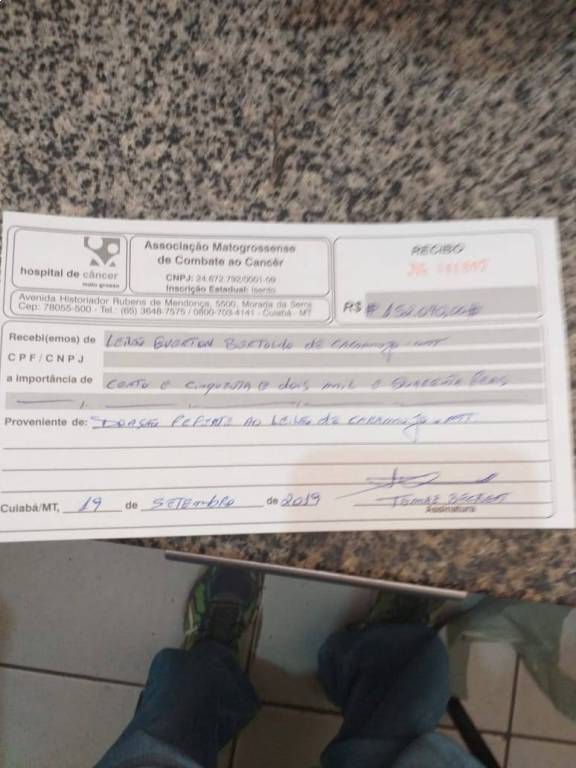 hospital de câncer
mato grosso
Associação Matogrossense
de Combate ao Cancêr
CNPJ: 24.672.792/0001-09
Inscrição Estadual: Isento
Avenida Historiador Rubens de Mendonça, 5500, Morada da Serra
Cep: 78055-500 - Tel.: (65) 3648-7575 / 0800-703-4141 - Cuiabá - MT
RECIBO
Nº
R$ # 152.040,00 #
Recebi(emos) de Leilão Everton Bortoldo de Caramujo-MT
CPF/CNPJ
a importância de Cento e cinquenta e dois mil e quarenta reais
Proveniente de: Doação Referte ao Leilão de Caramujo-MT.
Cuiabá/MT, 19 de Setembro de 2019
Tomaz
Assinatura